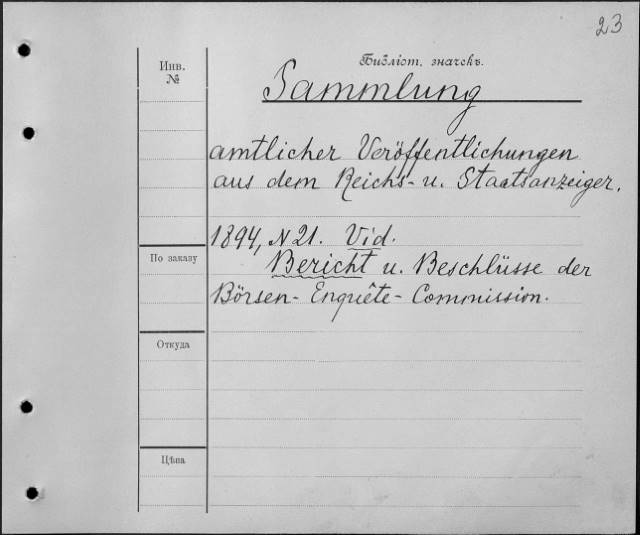 23
Инв.
№
Библіот. значекъ.
Sammlung
amtlicher Veröffentlichungen
aus dem Reichs- u. Staatsanzeiger.
1894, N 21. Vid.
По заказу
Bericht u. Beschlüsse der
Börsen- Enquête- Commission.
Откуда
Цѣна